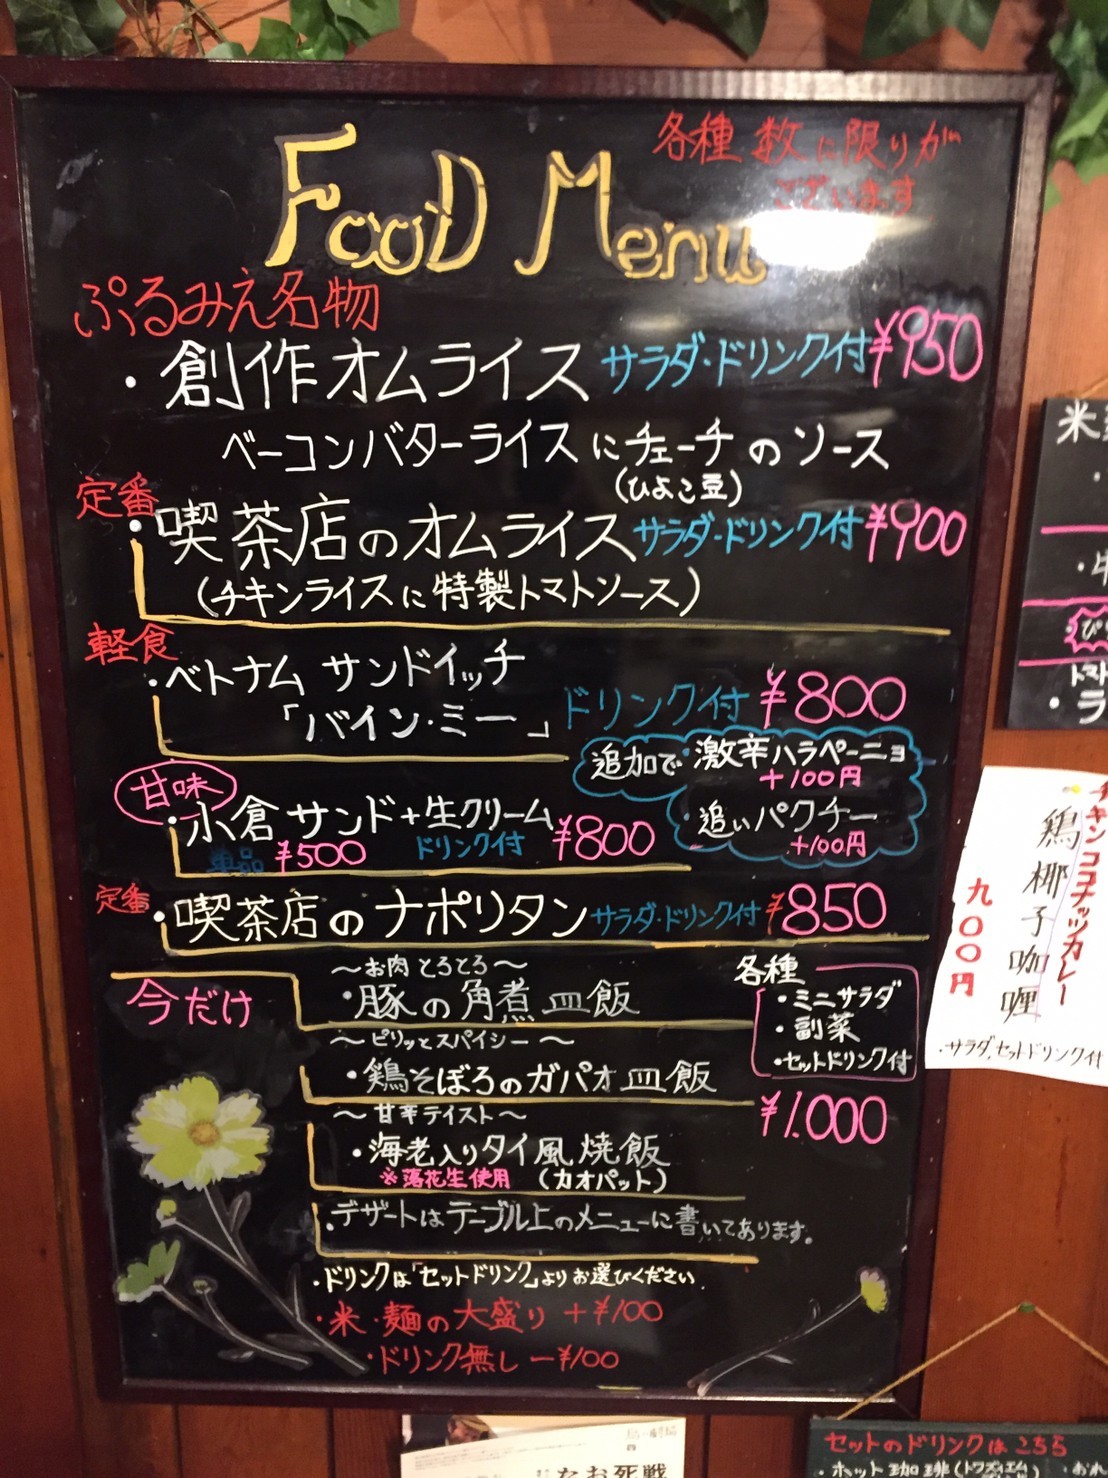 Food Menu
各種 数に限りが
ございます
ぷるみえ名物
・創作オムライス サラダ・ドリンク付 ¥950
ベーコンバターライスにチェーチのソース
(ひよこ豆)
定番
・喫茶店のオムライス サラダ・ドリンク付 ¥900
(チキンライスに特製トマトソース)
軽食
・ベトナム サンドイッチ
「バイン・ミー」 ドリンク付 ¥800
追加で 激辛ハラペーニョ
+100円
追いパクチー
+100円
甘味
・小倉サンド+生クリーム
単品 ¥500 ドリンク付 ¥800
定番
・喫茶店のナポリタン サラダ・ドリンク付 ¥850
今だけ
〜お肉とろとろ〜
・豚の角煮皿飯
〜ピリッとスパイシー〜
・鶏そぼろのガパオ皿飯
〜甘辛テイスト〜
・海老入りタイ風焼飯
※落花生使用 (カオパット)
各種
・ミニサラダ
・副菜
・セットドリンク付
¥1.000
・デザートはテーブル上のメニューに書いてあります。
・ドリンクは「セットドリンク」よりお選びください
・米・麺の大盛り +¥100
・ドリンク無し −¥100
チキンココナッツカレー
鶏椰子咖喱
九〇〇円
・サラダ、セットドリンク付
米
・牛
トマト
・ラ
セットのドリンクはこちら
・ホット珈琲
たお死戦